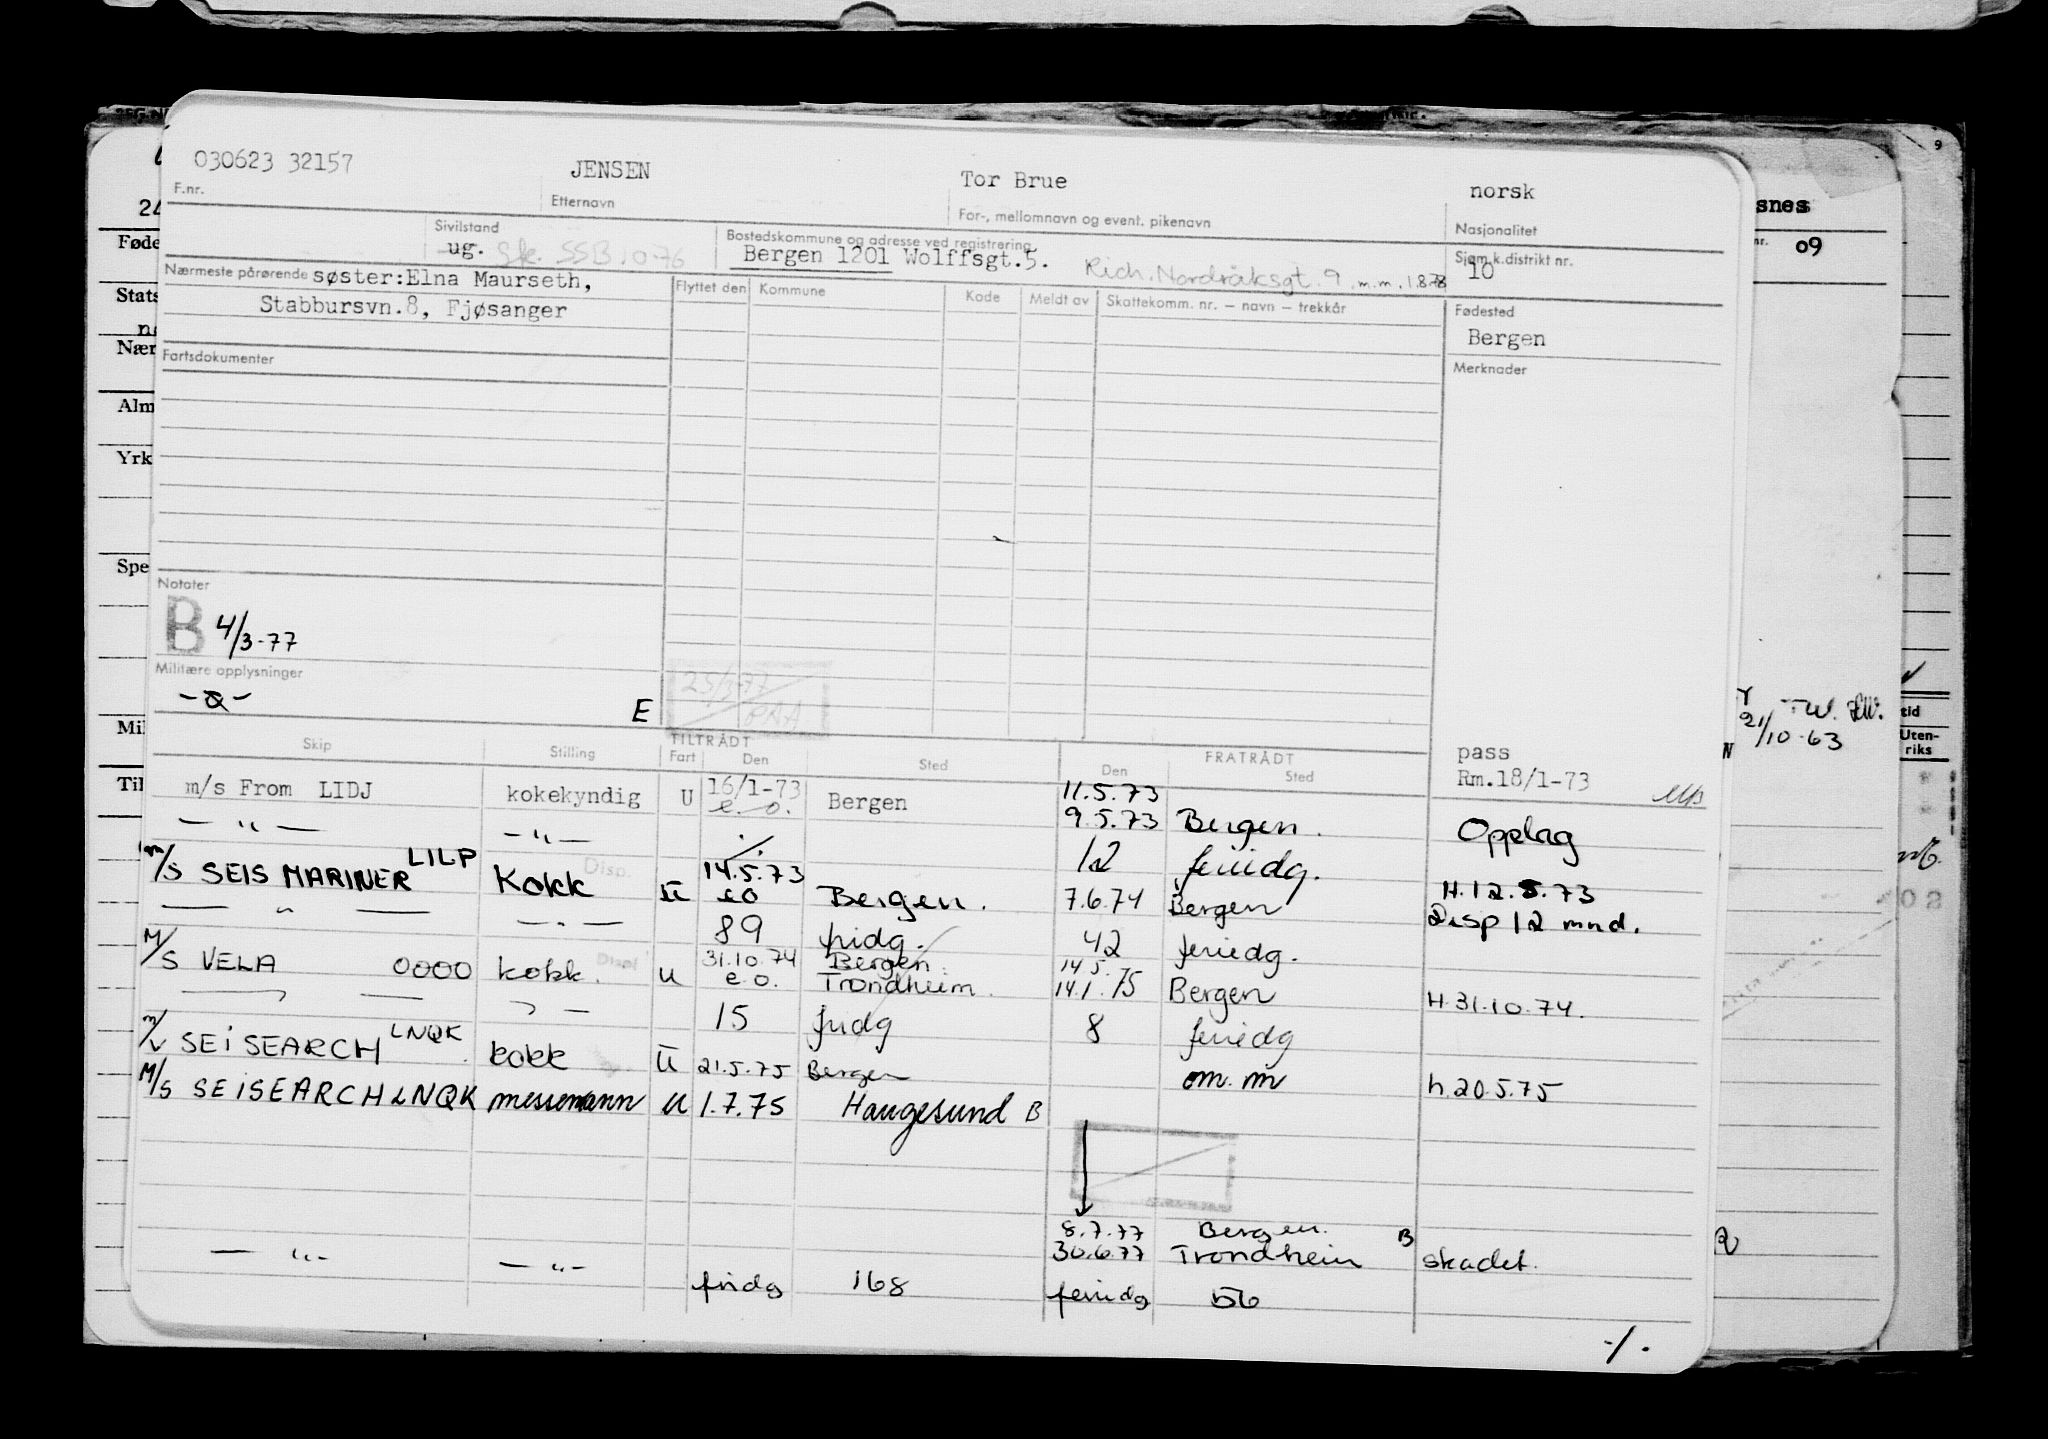 030623 32157 JENSEN Tor Brue norsk
F.nr. Etternavn For-, mellomnavn og event. pikenavn Nasjonalitet
Sivilstand Bostedskommune og adresse ved registrering Sjøm.k.distrikt nr.
ug. SSB 10-76 Bergen 1201 Wolffsgt.5. Rich. Nordraaksgt. 9 m.m. 1.8.78 10
Nærmeste pårørende søster:Elna Maurseth, Flyttet den Kommune Kode Meldt av Skattekomm. nr. — navn — trekkår Fødested
Stabbursvn.8, Fjøsanger Bergen
Fartsdokumenter Merknader
Notater
B 4/3-77
Militære opplysninger
25/3-77
E
TILTRÅDT FRATRÅDT
Skip Stilling Fart Den Sted Den Sted
pass
m/s From LIDJ kokekyndig U 16/1-73 Bergen 11.5.73 Rm.18/1-73
— " — — " — e.o. 9.5.73 Bergen. Opplag
./. 12 feriedg.
m/s SEIS MARINER LILP Kokk Disp. U 14.5.73 Bergen. 7.6.74 Bergen H.12.5.73
— " — — " — eo Disp 12 mnd.
89 fridg. 42 feriedg.
M/S VELA 0000 kokk. Displ U 31.10.74 Bergen. 14.5.
e.o. Trondheim. 14.1.75 Bergen H 31.10.74.
15 fridg 8 feriedg
m/v SEiSEARCH LNQK kokk U 21.5.75 Bergen om. m h.20.5.75
M/S SEiSEARCH LNQK messemann U 1.7.75 Haugesund B
8.7.77 Bergen. B
— " — — " — 30.6.77 Trondheim skadet.
fridg 168 feriedg 56
-/.
24
Føde
Stats
Nær
Alm
Yrk
Spe
Mil
Til
snes
nr. 09
9
21/10-63
tid
Uten-
riks
02